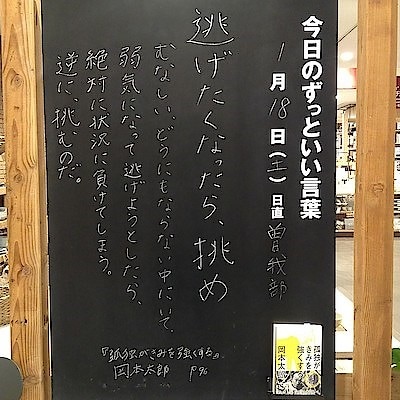 今日のずっといい言葉
1月18日(土) 日直 曽我部
逃げたくなったら、挑め
むなしい、どうにもならない中にいて、
弱気になって逃げようとしたら、
絶対に状況に負けてしまう。
逆に、挑むのだ。
『孤独がきみを強くする』
岡本太郎 P96
孤独が
きみを
強くする
岡本太郎